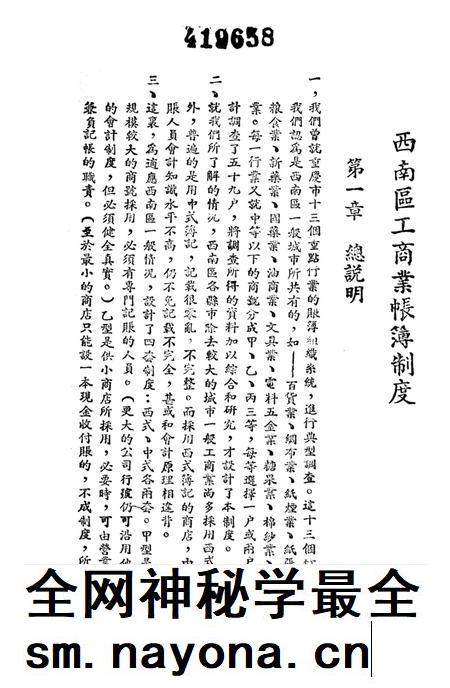 419658
西南區工商業帳簿制度
第一章 總說明
一,我們曾就重慶市十三個重點行業的賬簿組織系統,進行典型調查。這十三個
我們認為是西南區一般城市所共有的,如——百貨業、綢布業、紙煙業、紙張
糧食業、新藥業、國藥業、油商業、文具業、電料五金業、糖菓業、棉紗業、
業。每一行業又就中等以下的商號分成甲、乙、丙三等,每等選擇一戶或兩戶
計調查了五十九戶,將調查所得的資料加以綜合和研究,才設計了本制度。
二、就我們所了解的情況,西南區各縣市除去較大的城市一般工商業尚多採用西式
外,普遍的是用中式簿記,記載很零亂,不完整。而採用西式簿記的商店,由
賬人員會計知識水平不高,仍不免記載不完全,甚或和會計原理相違背。
三、這裏,為適應西南區一般情況,設計了四套制度:西式、中式各兩套。甲型是
規模較大的商號採用,必須有專門記賬的人員。(更大的公司行號仍可沿用他
的會計制度,但必須健全真實。)乙型是供小商店所採用,必要時,可由營業
兼負記帳的職責。(至於最小的商店只能設一本現金收付賬的,不成制度,所
全网神秘学最全
sm.nayona.cn